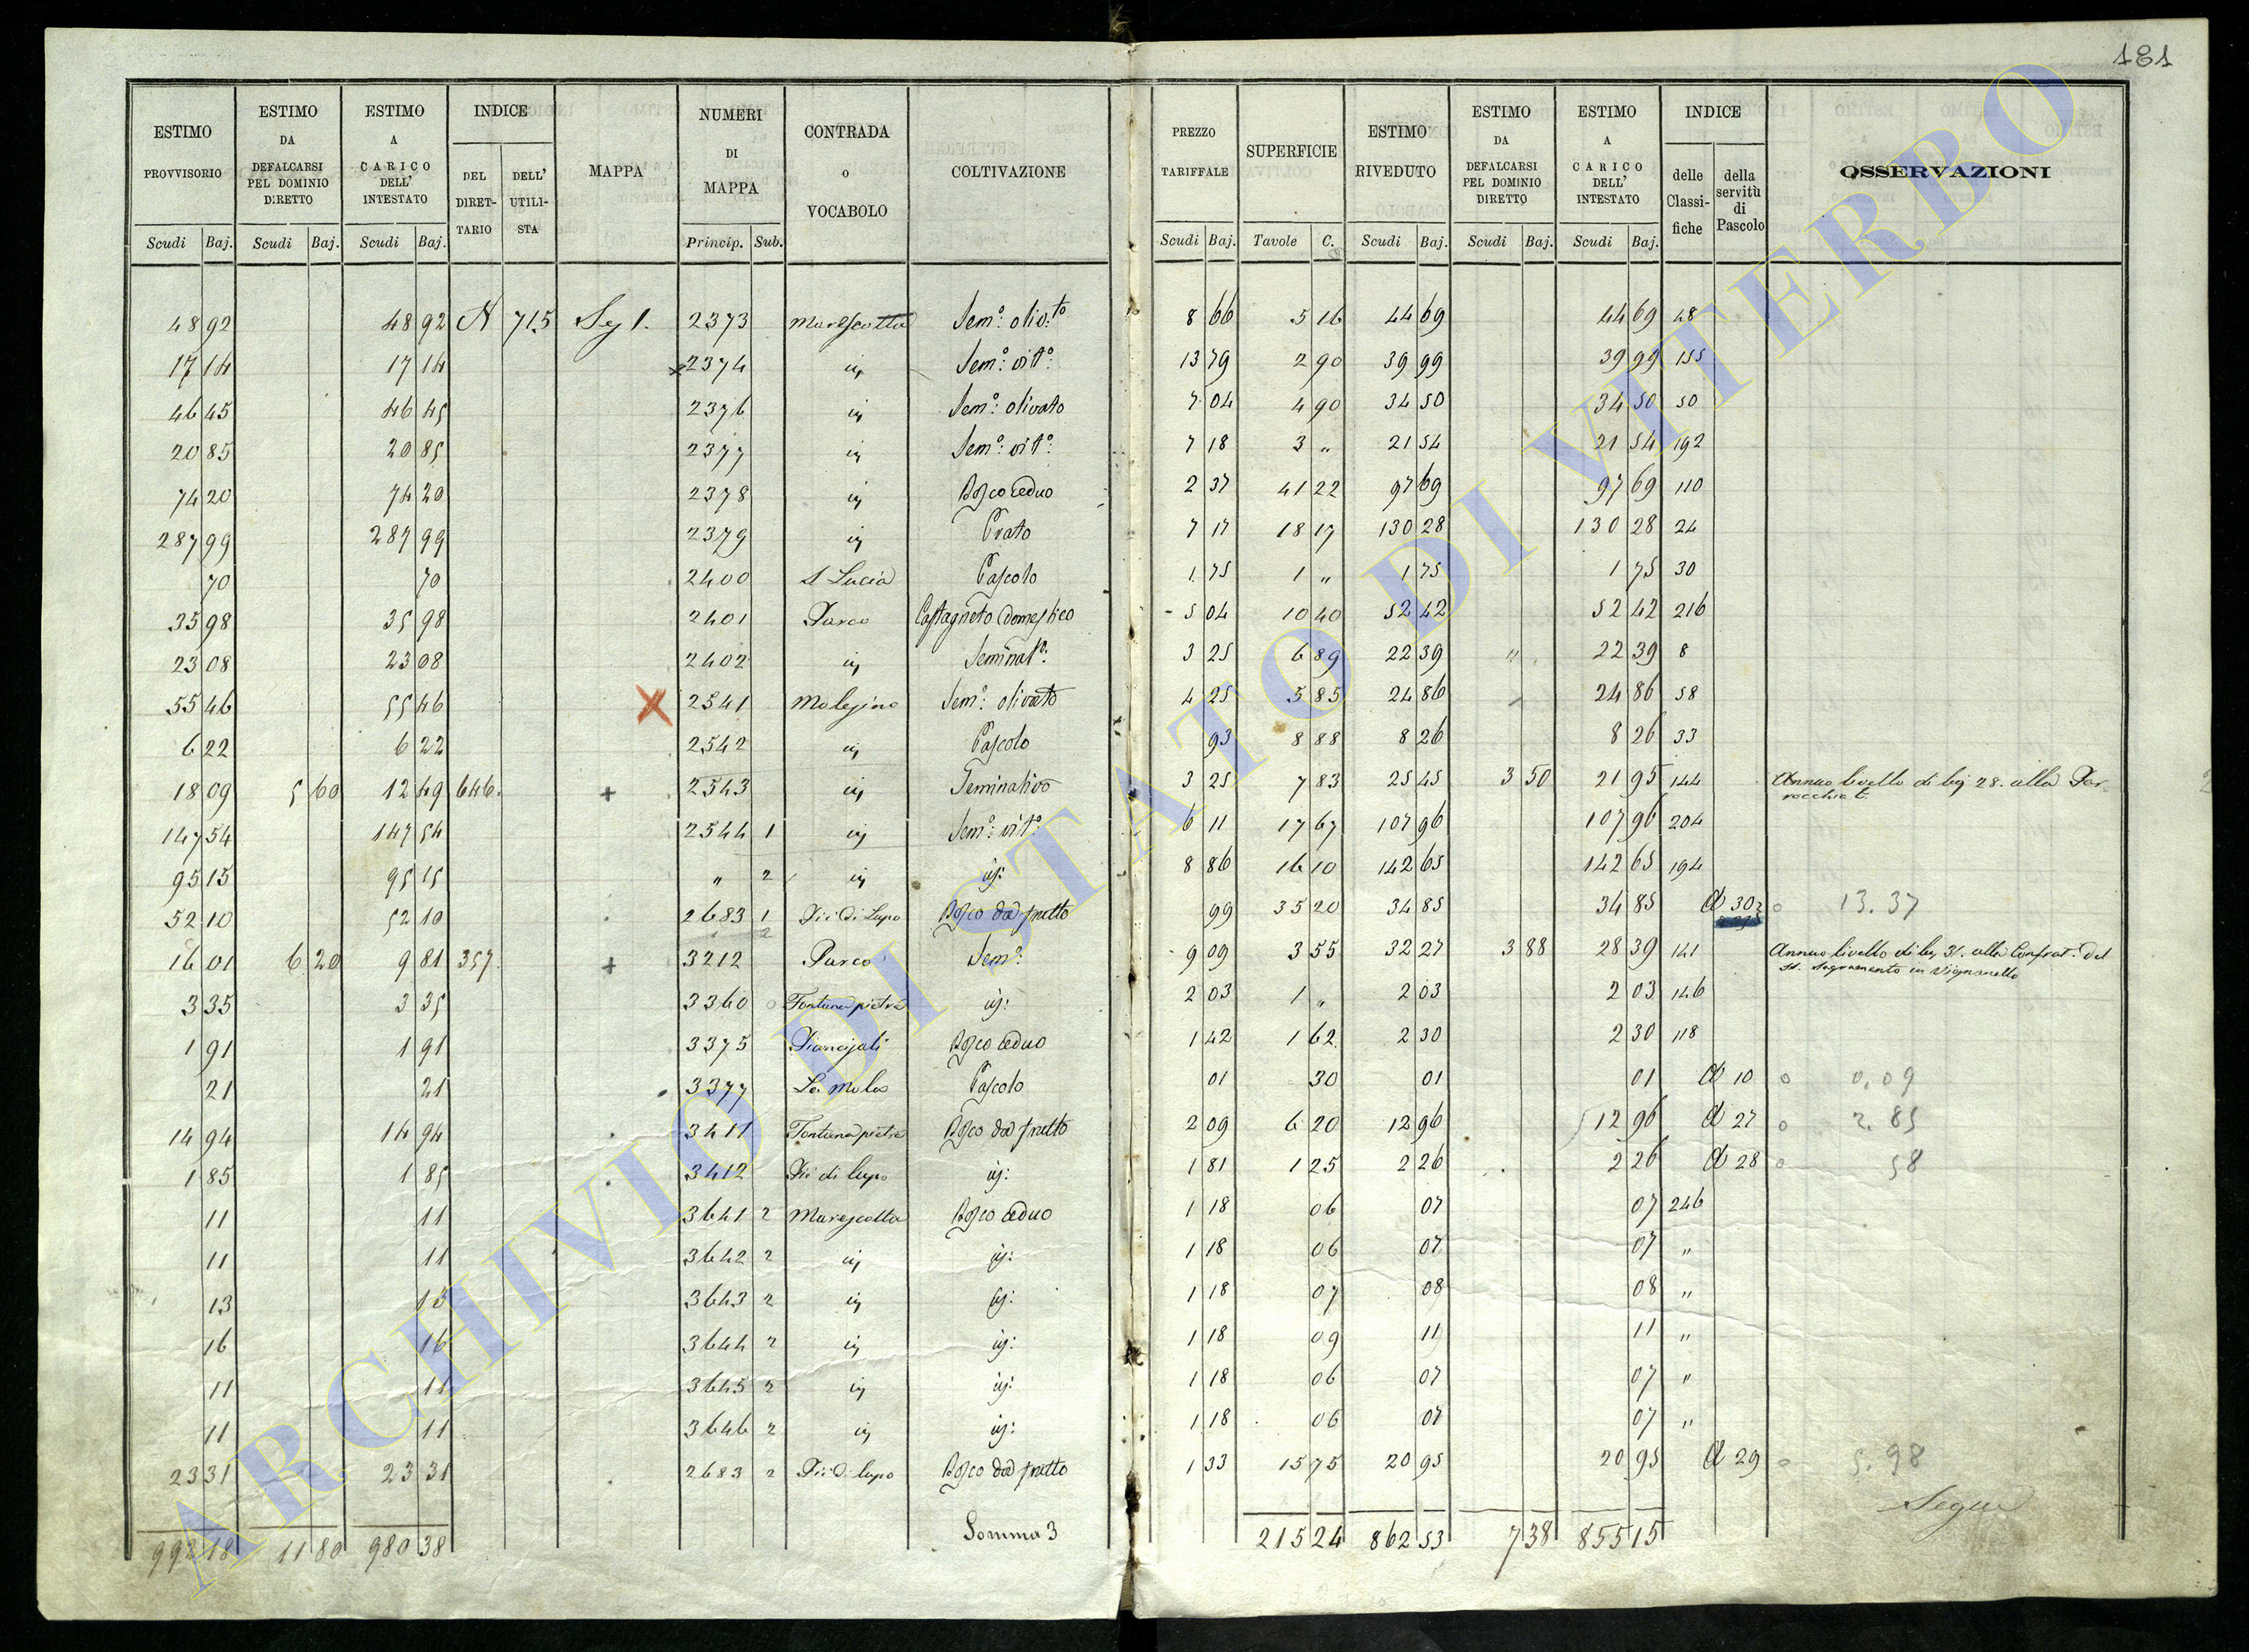 181
ESTIMO PROVVISORIO | ESTIMO DA DEFALCARSI PEL DOMINIO DIRETTO | ESTIMO A CARICO DELL' INTESTATO | INDICE DEL DIRETTARIO | DELL' UTILISTA | MAPPA | NUMERI DI MAPPA | CONTRADA o VOCABOLO | COLTIVAZIONE | PREZZO TARIFFALE | SUPERFICIE | ESTIMO RIVEDUTO | ESTIMO DA DEFALCARSI PEL DOMINIO DIRETTO | ESTIMO A CARICO DELL' INTESTATO | INDICE delle Classifiche | della servitù di Pascolo | OSSERVAZIONI
Scudi Baj. | Scudi Baj. | Scudi Baj. | Princip. Sub. | Scudi Baj. | Tavole C. | Scudi Baj. | Scudi Baj. | Scudi Baj.
48 92 | 48 92 | 715 | Sez 1. | 2373 | Marescotta | Sem.o oliv.to | 8 66 | 5 16 | 44 69 | 44 69 | 48
17 14 | 17 14 | 2374 | Sem.o vit.o | 13 79 | 2 90 | 39 99 | 39 99 | 155
46 45 | 46 45 | 2376 | Sem.o olivato | 7 04 | 4 90 | 34 50 | 34 50 | 50
20 85 | 20 85 | 2377 | Sem.o vit.o | 7 18 | 3 " | 21 54 | 21 54 | 192
74 20 | 74 20 | 2378 | Bosco ceduo | 2 37 | 41 22 | 97 69 | 97 69 | 110
287 99 | 287 99 | 2379 | Prato | 7 17 | 18 17 | 130 28 | 130 28 | 24
70 | 70 | 2400 | S Lucia | Pascolo | 1 75 | 1 " | 1 75 | 1 75 | 30
35 98 | 35 98 | 2401 | Parco | Castagneto domestico | 5 04 | 10 40 | 52 42 | 52 42 | 216
23 08 | 23 08 | 2402 | Seminat.o | 3 25 | 6 89 | 22 39 | " | 22 39 | 8
55 46 | 55 46 | X | 2541 | Molesino | Sem.o olivato | 4 25 | 5 85 | 24 86 | 24 86 | 58
6 22 | 6 22 | 2542 | Pascolo | 93 | 8 88 | 8 26 | 8 26 | 33
18 09 | 5 60 | 12 49 | 646. | + | 2543 | Seminativo | 3 25 | 7 83 | 25 45 | 3 50 | 21 95 | 144 | Annuo livello di bj 28. alla Par-
rocchia
147 54 | 147 54 | 2544 1 | Sem.o vit.o | 6 11 | 17 67 | 107 96 | 107 96 | 204
95 15 | 95 15 | " 2 | 8 86 | 16 10 | 142 65 | 142 65 | 194
52 10 | 52 10 | 2683 1 | Piè di Lupo | Bosco da frutto | 99 | 35 20 | 34 85 | 34 85 | 30 | 13.37
16 01 | 6 20 | 9 81 | 357. | + | 3212 | Parco | Sem.o | 9 09 | 3 55 | 32 27 | 3 88 | 28 39 | 141 | Annuo livello di bj 31. alla Confrat. del
SS. Sagramento in Vignanello
3 35 | 3 35 | 3360 | Fontana pietra | 2 03 | 1 " | 2 03 | 2 03 | 146
1 91 | 1 91 | 3375 | Bosco ceduo | 1 42 | 1 62 | 2 30 | 2 30 | 118
21 | 21 | 3377 | La mola | Pascolo | 01 | 30 | 01 | 01 | 10 | 0.09
14 94 | 14 94 | 3411 | Fontana pietra | Bosco da frutto | 2 09 | 6 20 | 12 96 | 12 96 | 27 | 2.85
1 85 | 1 85 | 3412 | Piè di lupo | 1 81 | 1 25 | 2 26 | 2 26 | 28 | 58
11 | 11 | 3641 2 | Marescotta | Bosco ceduo | 1 18 | 06 | 07 | 07 | 246
11 | 11 | 3642 2 | 1 18 | 06 | 07 | 07 | "
13 | 13 | 3643 2 | 1 18 | 07 | 08 | 08 | "
16 | 16 | 3644 2 | 1 18 | 09 | 11 | 11 | "
11 | 11 | 3645 2 | 1 18 | 06 | 07 | 07 | "
11 | 11 | 3646 2 | 1 18 | 06 | 07 | 07 | "
23 31 | 23 31 | 2683 2 | Piè di lupo | Bosco da frutto | 1 33 | 15 75 | 20 95 | 20 95 | 29 | 5.98
Segue
992 18 | 11 80 | 980 38 | Somma 3 | 215 24 | 862 53 | 7 38 | 855 15
ARCHIVIO DI STATO DI VITERBO